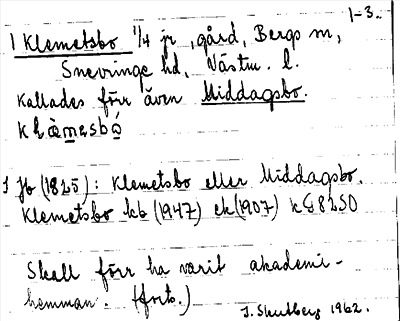 1-3.
1 Klemetsbo 1/4 jr, gård, Bergs sn,
Snevringe hd, Västm. l.
Kallades förr även Middagsbo.
Jb (1825): Klemetsbo eller Middagsbo.
Klemetsbo kb (1947) ek (1907)
Skall förr ha varit akademi-
hemman. (forts.)
1962.